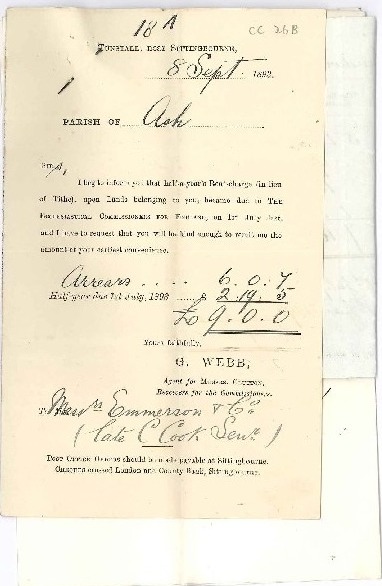 18A
CC 26B
Tunstall, near Sittingbourne,
8 Sept. 1892.
PARISH OF Ash
Sirs,
I beg to inform you that half-a-year's Rent-charge (in lieu
of Tithe), upon Lands belonging to you, became due to The
Ecclesiastical Commissioners for England, on 1st July last,
and I have to request that you will be kind enough to remit me the
amount at your earliest convenience.
Arrears . . . . 6. 0. 7
Half-year due 1st July, 189 ..... £ 2. 19. 5
£ 9. 0. 0
Yours faithfully,
G. WEBB,
Agent for Messrs.
Receivers for the Commissioners.
To Messrs Emmerson & Co
(late C Cook Senr)
Post Office Orders should be made payable at Sittingbourne.
Cheques crossed London and County Bank, Sittingbourne.